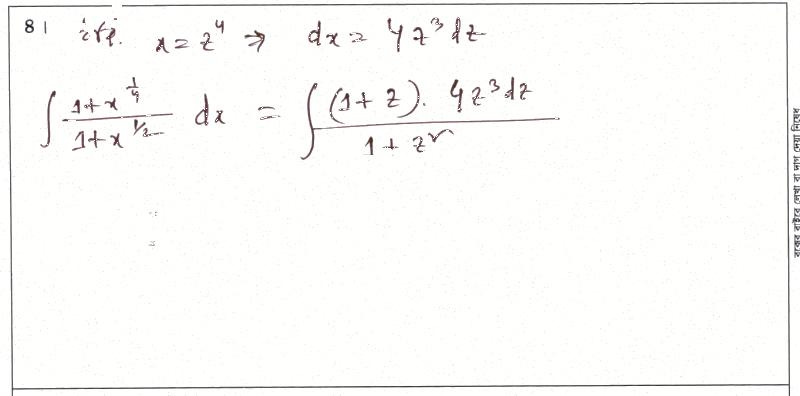 8 | ধরি. x = z^4 ⇒ dx = 4z^3 dz
∫ (1+x^{1/4})/(1+x^{1/2}) dx = ∫ ((1+z). 4z^3 dz)/(1+z^2)
বক্সের বাইরে লেখা বা দাগ দেয়া নিষেধ